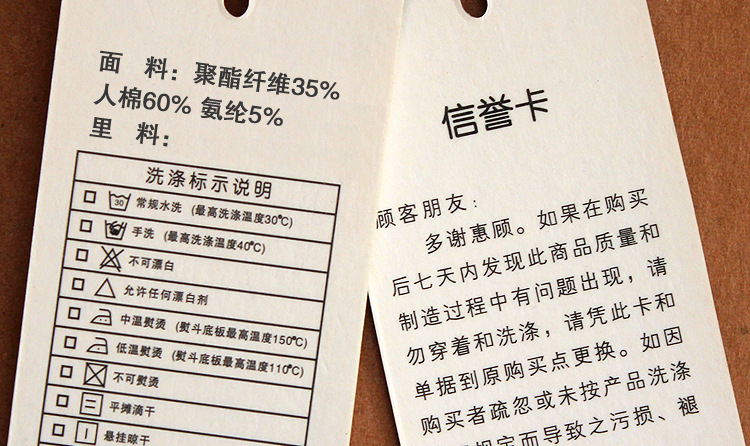 面 料：聚酯纤维35%
人棉60% 氨纶5%
里 料：
洗涤标示说明
30 常规水洗 (最高洗涤温度30℃)
手洗 (最高洗涤温度40℃)
不可漂白
允许任何漂白剂
中温熨烫 (熨斗底板最高温度150℃)
低温熨烫 (熨斗底板最高温度110℃)
不可熨烫
平摊滴干
悬挂晾干
信誉卡
顾客朋友：
多谢惠顾。如果在购买
后七天内发现此商品质量和
制造过程中有问题出现，请
勿穿着和洗涤，请凭此卡和
单据到原购买点更换。如因
购买者疏忽或未按产品洗涤
规定而导致之污损、褪